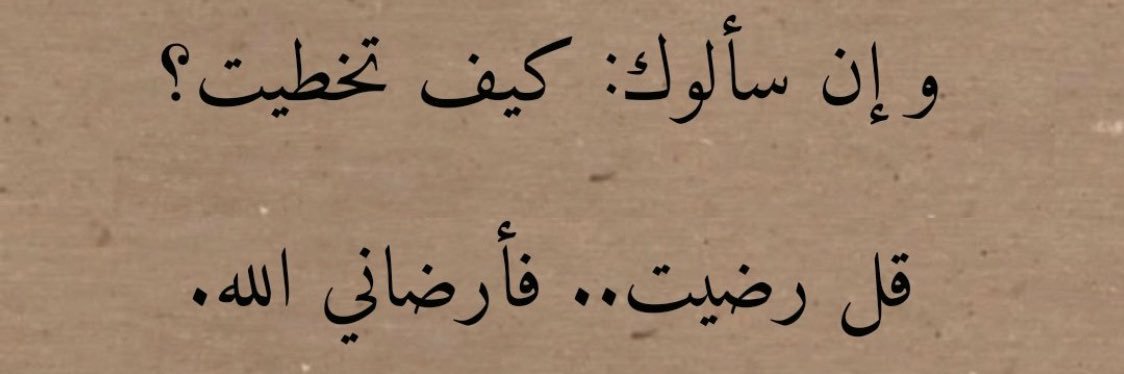 و إن سألوك: كيف تخطيت؟
قل رضيت.. فأرضاني الله.